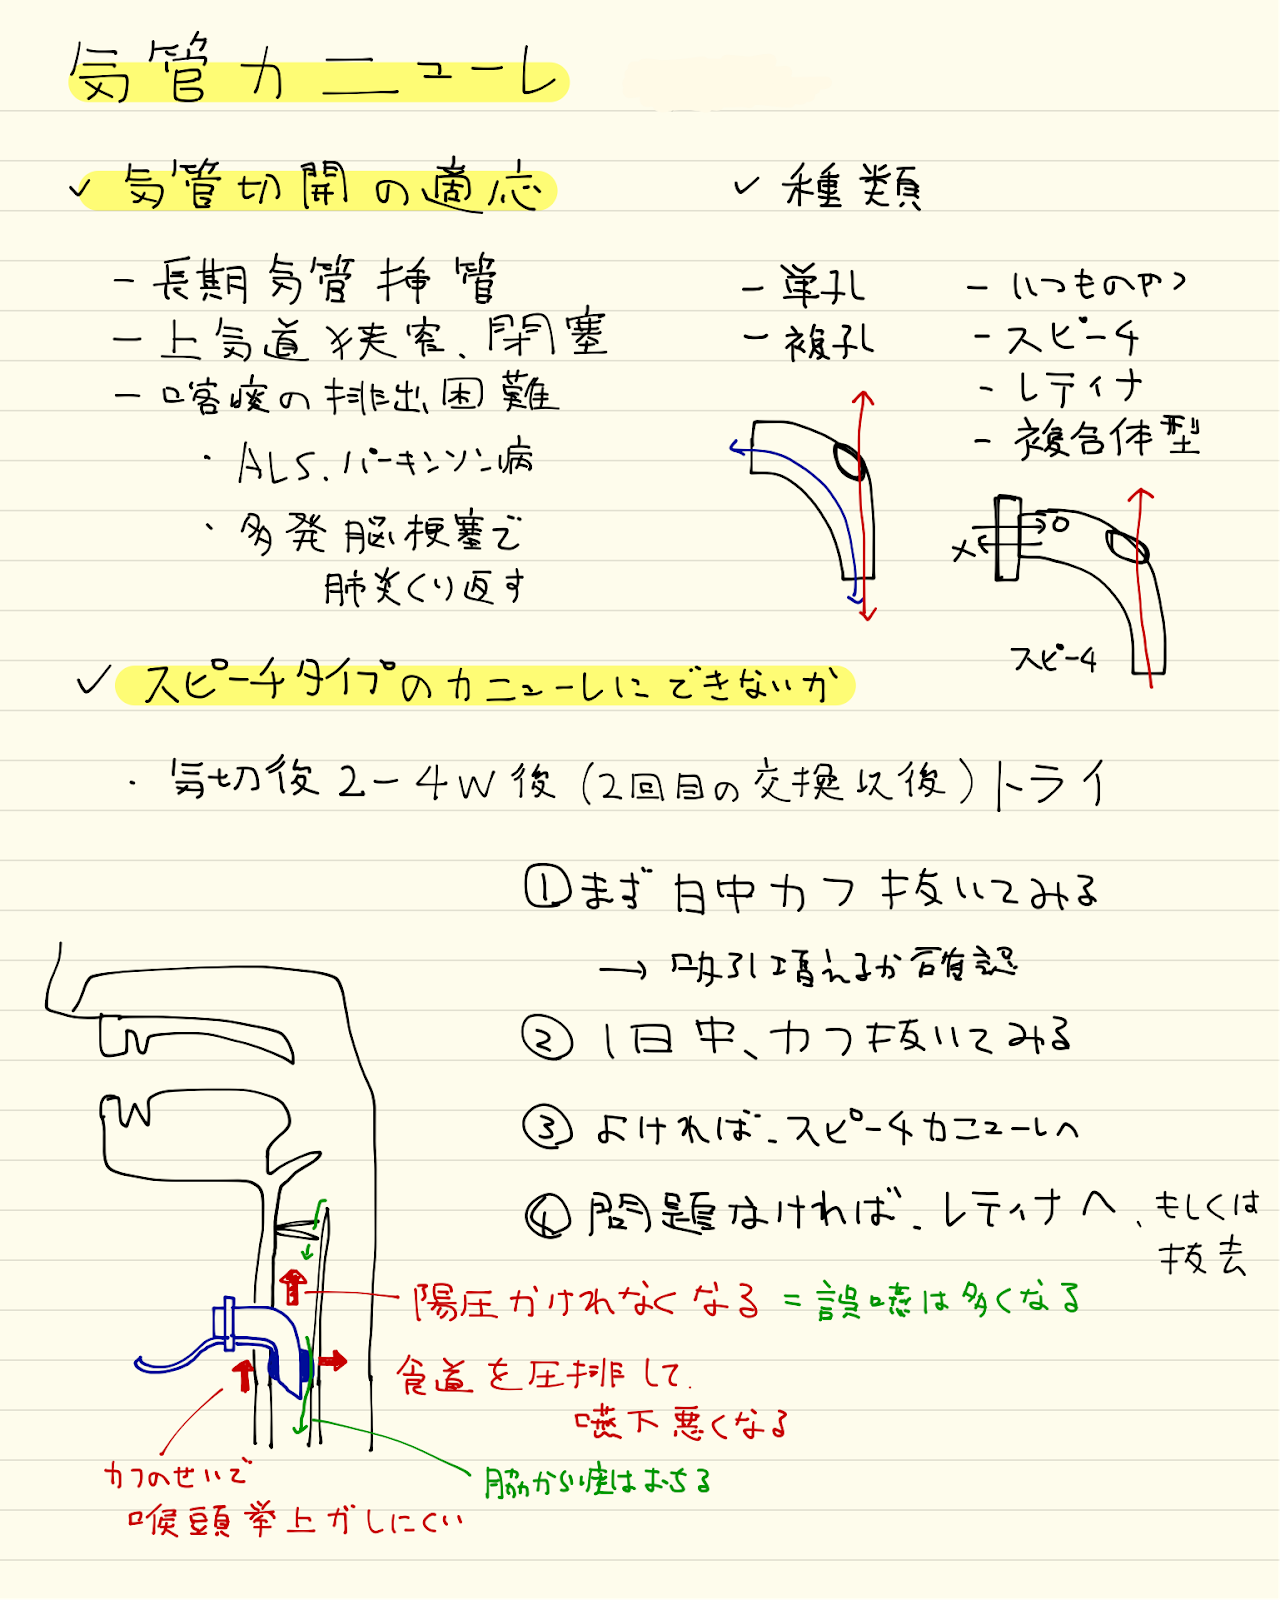 気管カニューレ
✓ 気管切開の適応
- 長期気管挿管
- 上気道狭窄、閉塞
- 喀痰の排出困難
・ALS、パーキンソン病
・多発脳梗塞で
肺炎くり返す
✓ 種類
- 単孔
- 複孔
- いつものやつ
- スピーチ
- レティナ
- 複合体型
○
×
スピーチ
✓ スピーチタイプのカニューレにできないか
・気切後2-4W後(2回目の交換以後)トライ
① まず日中カフ抜いてみる
→ 吸引増えるか確認
② 1日中、カフ抜いてみる
③ よければ、スピーチカニューレへ
④ 問題なければ、レティナへ、もしくは
抜去
陽圧かけれなくなる = 誤嚥は多くなる
食道を圧排して
嚥下悪くなる
脇から唾はおちる
カフのせいで
喉頭挙上がしにくい